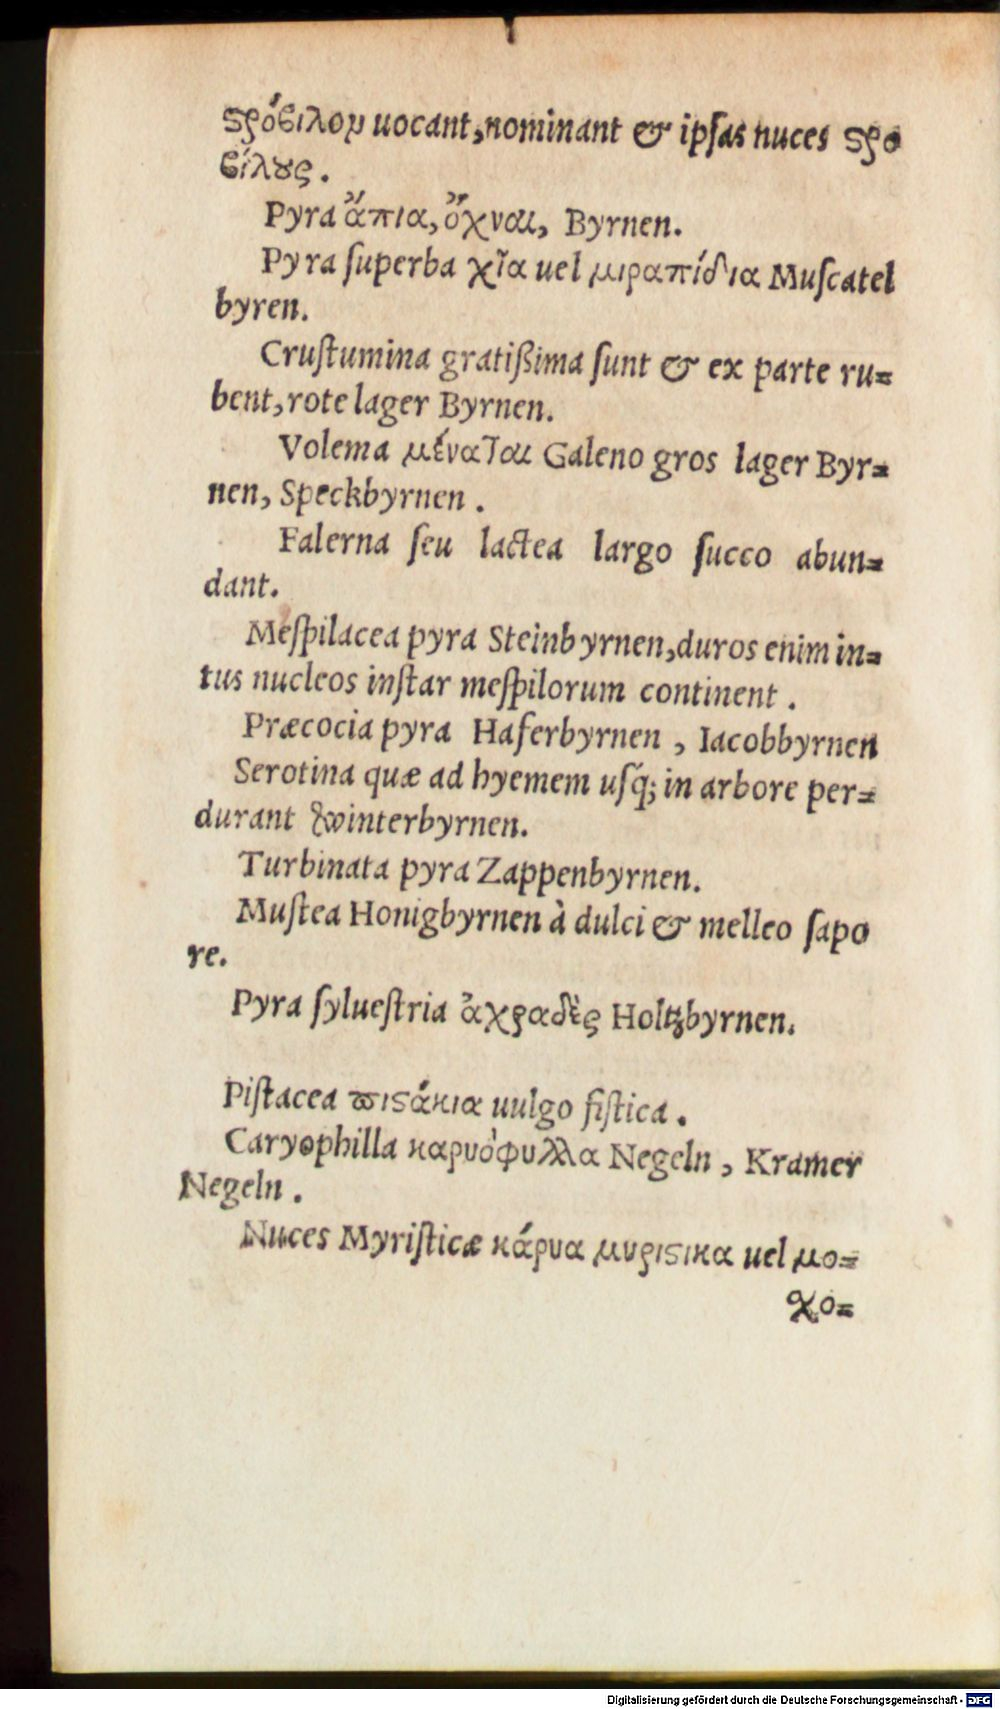 ϛρόϐιλομ uocant, nominant & ipſas nuces ϛρο
ϐίλȣς.
Pyra ἄπια, ὄχναι, Byrnen.
Pyra ſuperba χῖα uel μιραπίδια Muſcatel
byren.
Cruſtumina gratißima ſunt & ex parte ru=
bent, rote lager Byrnen.
Volema μέναῖαι Galeno gros lager Byr=
nen, Speckbyrnen.
Falerna ſeu lactea largo ſucco abun=
dant.
Meſpilacea pyra Steinbyrnen, duros enim in=
tus nucleos inſtar meſpilorum continent.
Præcocia pyra Haferbyrnen, Iacobbyrnen
Serotina quæ ad hyemem uſq; in arbore per=
durant winterbyrnen.
Turbinata pyra Zappenbyrnen.
Muſtea Honigbyrnen à dulci & melleo ſapo
re.
Pyra ſylueſtria ἀχραδὲς Holtzbyrnen.
Piſtacea ϖιϛάκια uulgo fiſtica.
Caryophilla καρυόφυλλα Negeln, Kramer
Negeln.
Nuces Myriſticæ κάρυα μυριϛικα uel μο=
χο=
Digitalisierung gefördert durch die Deutsche Forschungsgemeinschaft - DFG